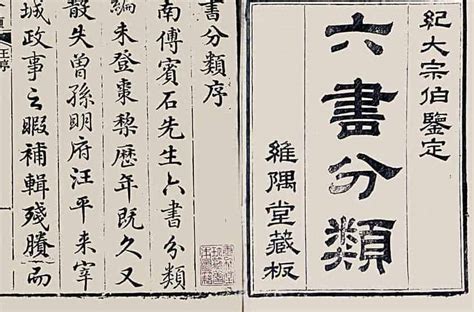 紀大宗伯鑒定
六書分類
維隅堂藏板
書分類序
南傅賓石先生六書分類
編未登棗黎歷年既久又
散失曾孫明府汪平来宰
城政事之暇補輯殘牘而